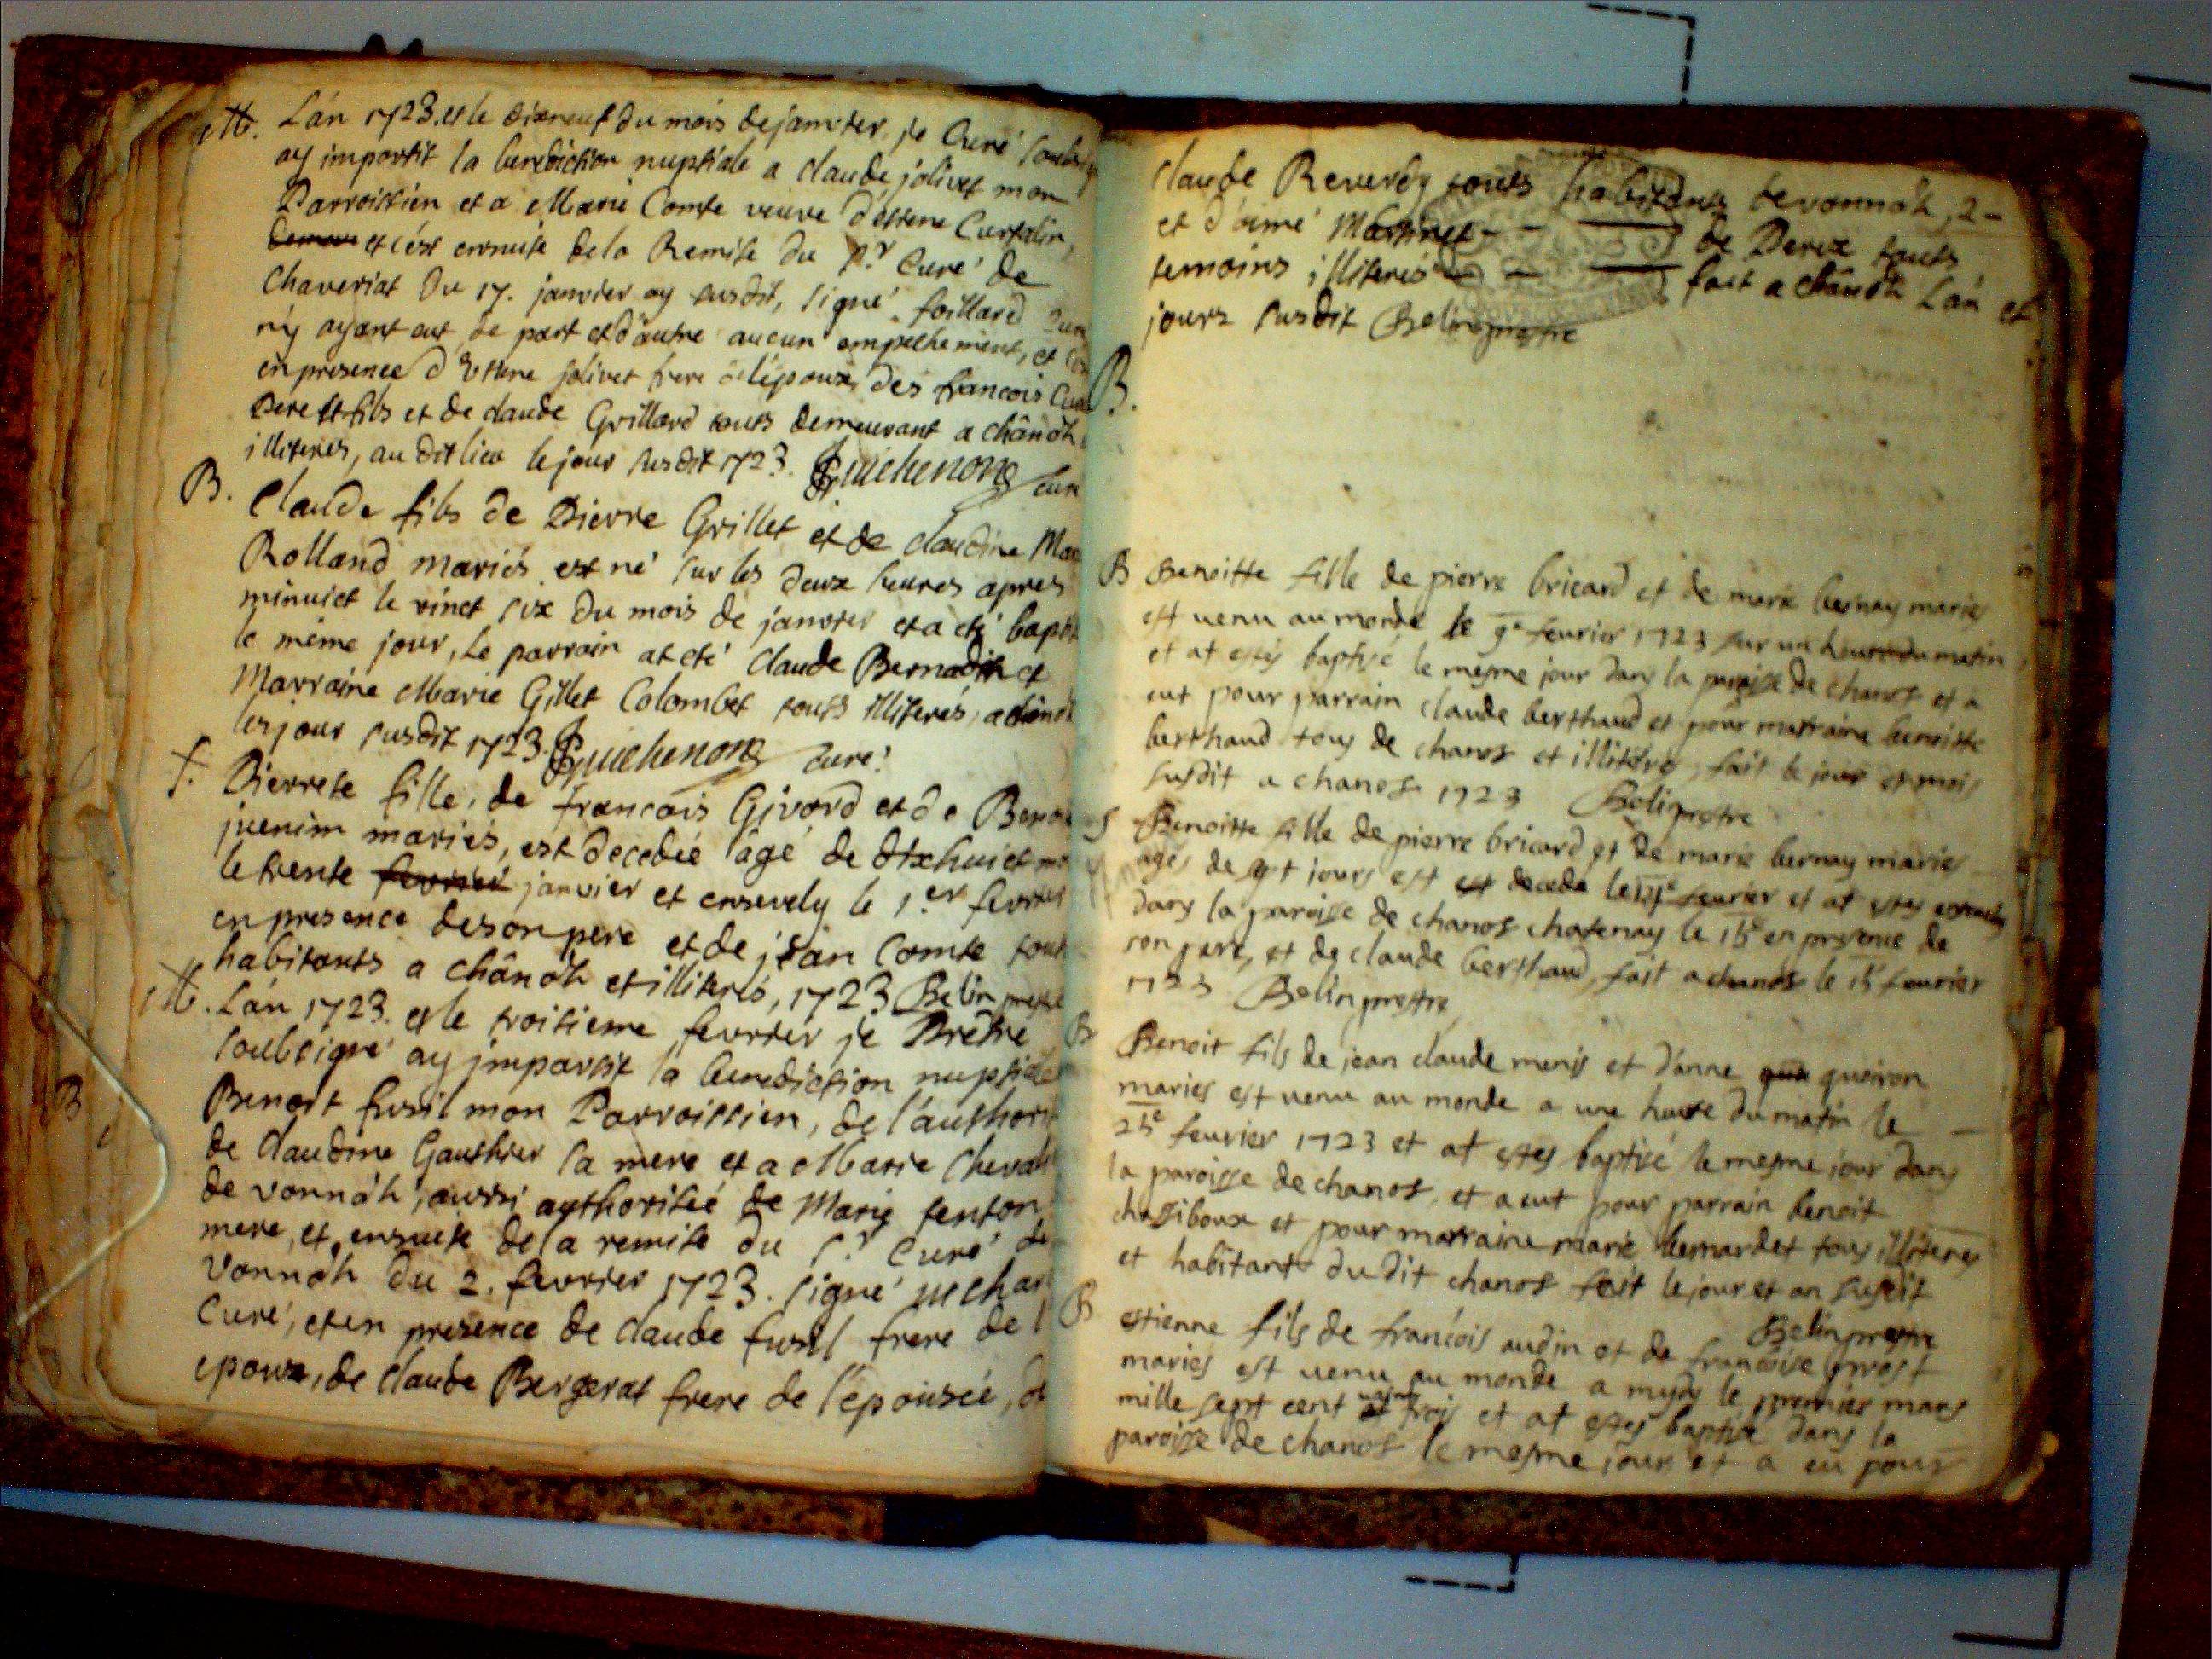 M. L'an 1723. et le dixneuf du mois de janvier, je Curé
ay impartit la benediction nuptiale a Claude jolivet mon
Parroissien et a Marie Comte veuve d'estiene Curtalin,
et c'est ensuite de la Remise du Sr. Curé de
Chaveriat du 17. janvier ay susdit, signé foillard
n'y ayant eut de part et d'autre aucun empechement, et
en presence d'Estiene jolivet frere de l'époux, des francois
Pere et fils et de claude Grillard touts demeurant a chânoh
illiterés, au dit lieu le jour susdit 1723. Guichenong Curé
B. Claude fils de Pierre Grillet et de claudine
Rolland mariés est né sur les deux heures apres
minuict le vinct six du mois de janvier et a eté
le même jour, Le parrain at eté Claude Bernadit et
Marraine Marie Gillet Colombet touts illiterés, a
les jour susdit 1723. Guichenong Curé
f. Pierrete fille, de francois Givord et de
juenim mariés, est decedée âgé de dixhuict
le trente fevrier janvier et ensevely le 1.er fevrier
en presence de son pere et de jean Comte
habitants a chânoh et illiterés, 1723 Belin prestre
M. L'an 1723. et le troisieme fevrier je Prêtre
soubsigné ay impartit la benediction nuptiale
Benoit fusil mon Parroissien, de l'authorité
de Claudine Gauthier sa mere et a Marie
de vonnah, aussi authorisée de Marie tenton
mere, et ensuite de la remise du Sr. Curé de
Vonnah du 2. fevrier 1723. signé
Curé, et en presence de claude fusil frere de l'
epoux, de Claude Bergerat frere de l'épousée,
Claude Reverdy touts habitants de vonnah, 2-
et d'aimé Martinet - - de Perex touts
temoins illiterés - - fait a chânoh L'an et
jours susdit Belin prestre
B.
B Benoitte fille de pierre bricard et de marie bernay mariés
est venu au monde le 9e fevrier 1723 sur un heure du matin
et at estés baptisé le mesme jour dans la paroisse de chanos et a
eut pour parrain claude berthaud et pour marraine benoitte
berthaud tous de chanos et illitéré, fait le jour et mois
susdit a chanos 1723 Belin prestre
S Benoitte fille de pierre bricard et de marie bernay mariés
agés de sept jours est est decede le fevrier et at estes
dans la paroisse de chanos chatenay le 15e en presence de
son pere, et de claude berthaud, fait a chanos le 15e fevrier
1723 Belin prestre
B Benoit fils de jean claude menis et d'anne queiron
mariés est venu au monde a une heure du matin le
25e fevrier 1723 et at estes baptisé le mesme jour dans
la paroisse de chanos, et a eut pour parrain benoit
chassiboux et pour marraine marie bernardet tous illiteres
et habitant du dit chanos fait le jour et an susdit
Belin prestre
B estienne fils de francois audin et de francoise prost
mariés est venu au monde a mydy le premier mars
mille sept cent vaint trois et at estes baptisé dans la
paroisse de chanos le mesme jour et a eu pour